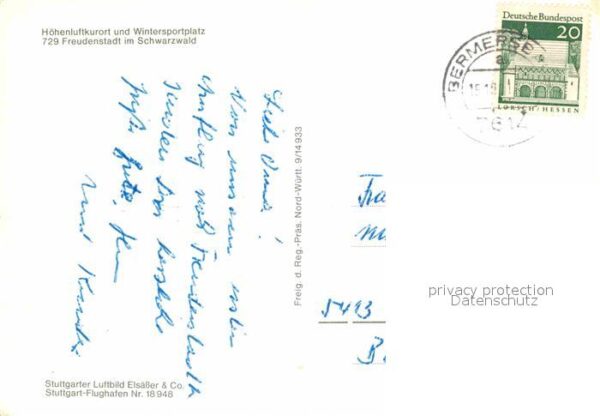 Höhenluftkurort und Wintersportplatz
729 Freudenstadt im Schwarzwald
Liebe Oma!
Von unserem ersten
Ausflug nach Freudenstadt
senden Dir herzliche
Grüße
und Kinder
Freig. d. Reg.-Präs. Nord-Württ. 9/14 933
Stuttgarter Luftbild Elsäßer & Co.
Stuttgart-Flughafen Nr. 18 948
Deutsche Bundespost
20
LORSCH/HESSEN
BERMERSB
a
7614
Fra
5493
B.
privacy protection
Datenschutz